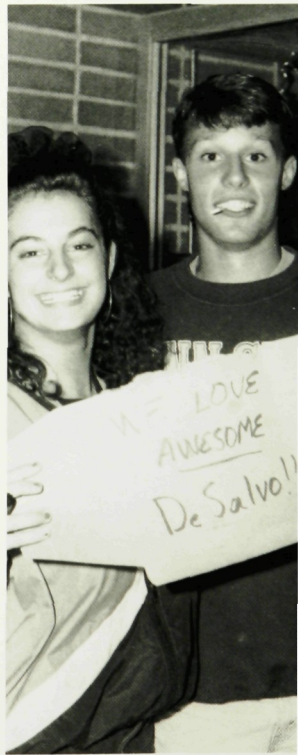 WE LOVE
AWESOME
DeSalvo!!